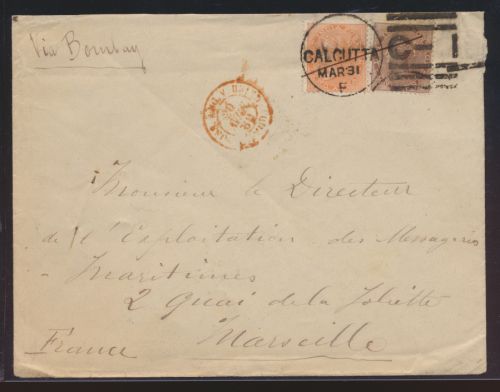 Via Bombay
CALCUTTA
MAR 31
F
C-1
Monsieur le Directeur
de l'Exploitation des Messageries
- Maritimes
2 Quai de la Joliette
Marseille
France